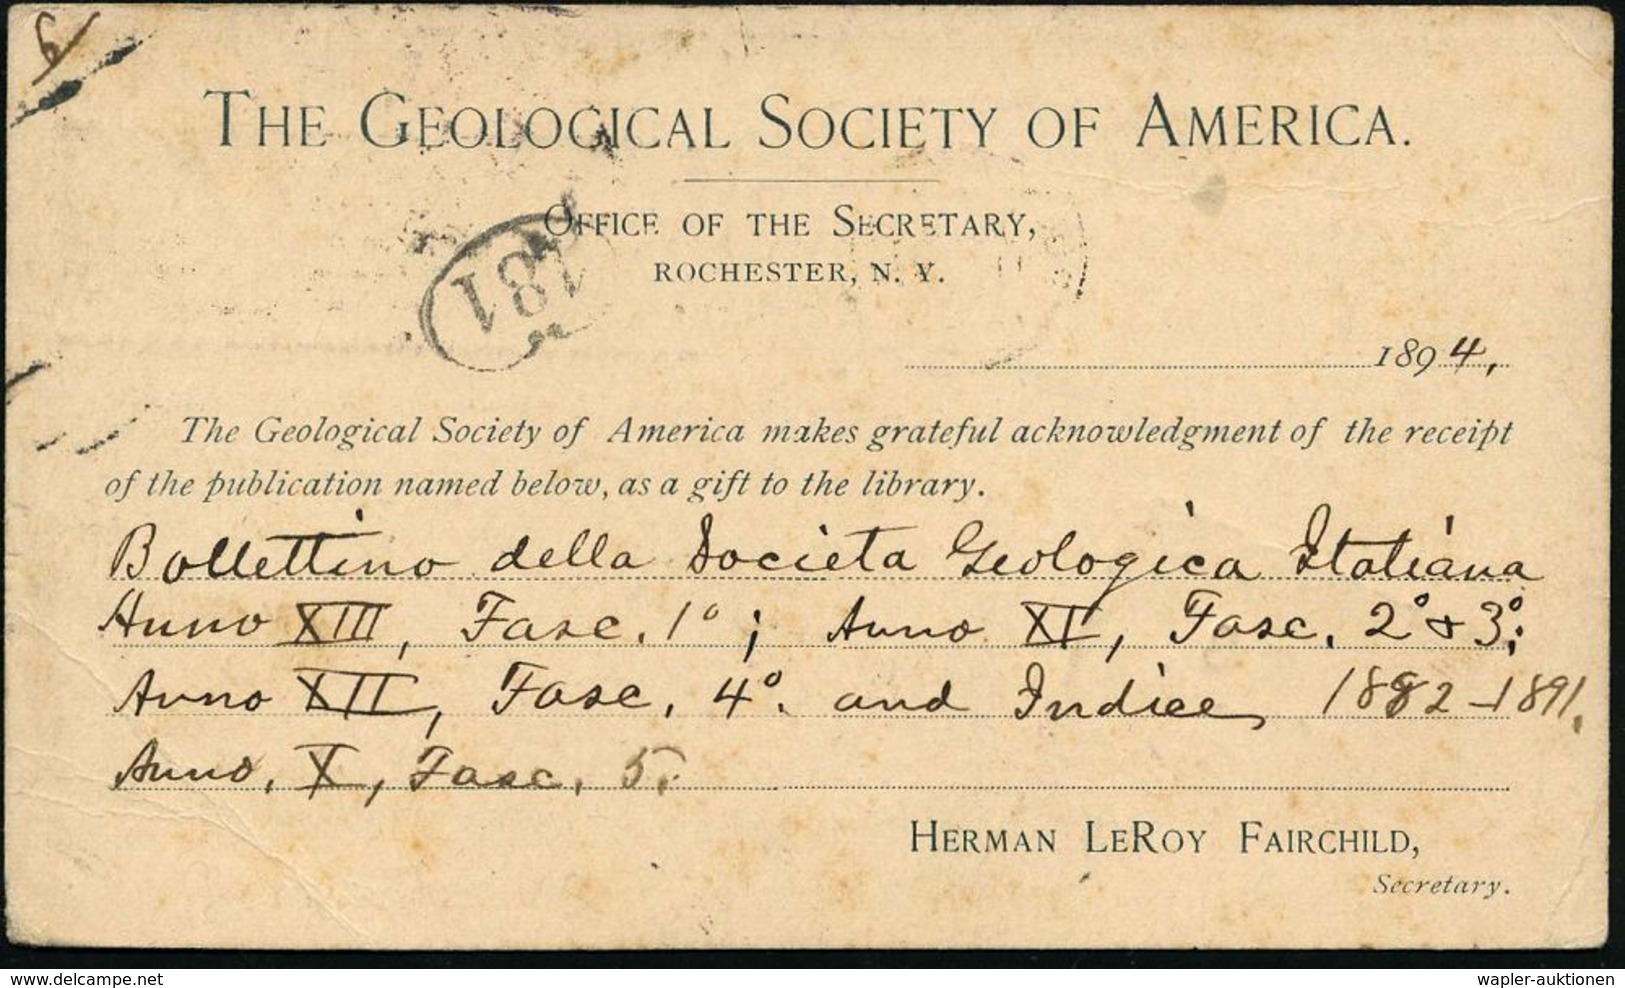 6
THE GEOLOGICAL SOCIETY OF AMERICA.
OFFICE OF THE SECRETARY,
ROCHESTER, N. Y.
181
1894,
The Geological Society of America makes grateful acknowledgment of the receipt
of the publication named below, as a gift to the library.
Bollettino della Societa Geologica Italiana
Anno XIII, Fasc. 1°; Anno XI, Fasc. 2° & 3°;
Anno XII, Fasc. 4°. and Indice, 1882-1891.
Anno. X, Fasc. 5.
HERMAN LEROY FAIRCHILD,
Secretary.
www.delcampe.net
wapler-auktionen